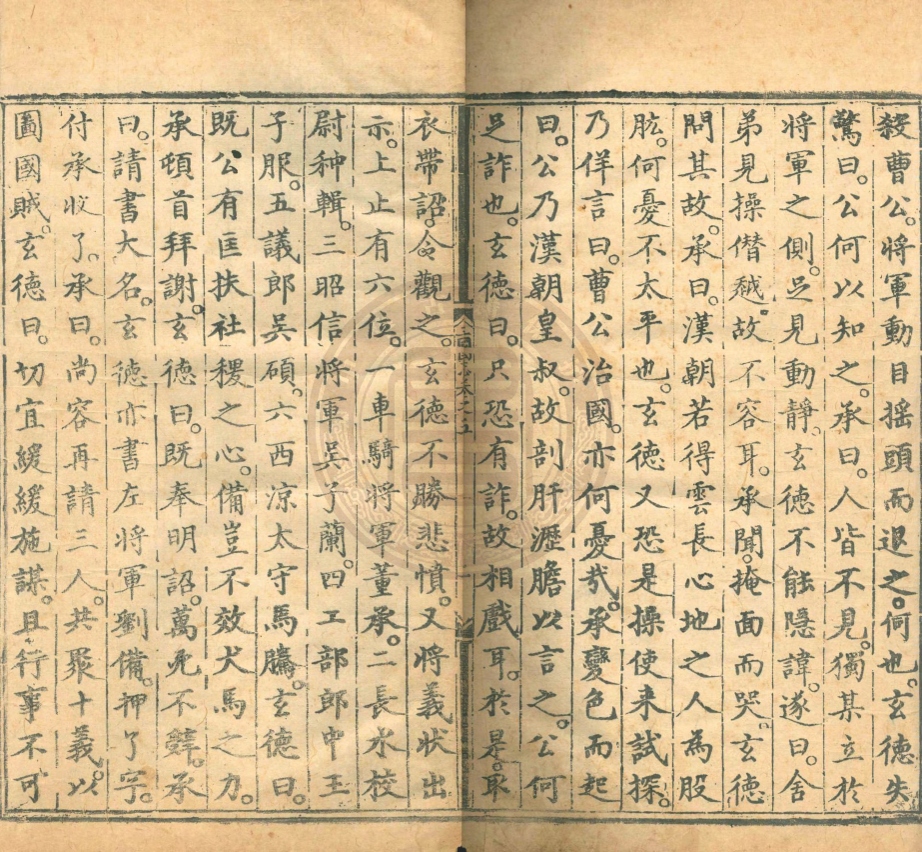 殺曹公。將軍動目搖頭而退之。何也。玄德失
驚曰。公何以知之。承曰。人皆不見。獨某立於
將軍之側。足見動靜。玄德不能隱諱。遂曰。舍
弟見操僣越。故不容耳。承聞。掩面而哭。玄德
問其故。承曰。漢朝若得雲長心地之人為股
肱。何憂不太平也。玄德又恐是操使来試探。
乃佯言曰。曹公治國。亦何憂哉。承變色而起
曰。公乃漢朝皇叔。故剖肝瀝膽以言之。公何
足詐也。玄德曰。只恐有詐。故相戲耳。於是取
衣帶詔。令觀之。玄德不勝悲憤。又將義狀出
示。上止有六位。一車騎將軍董承。二長水校
尉种輯。三昭信將軍吴子蘭。四工部郎中王
子服。五議郎吴碩。六西涼太守馬騰。玄德曰。
既公有匡扶社稷之心。備豈不效犬馬之力。
承頓首拜謝。玄德曰。既奉明詔。萬死不辭。承
曰。請書大名。玄德亦書左將軍劉備。押了字。
付承收了。承曰。尚容再請三人。共聚十義。以
圖國賊。玄德曰。切宜緩緩施謀。且行事不可